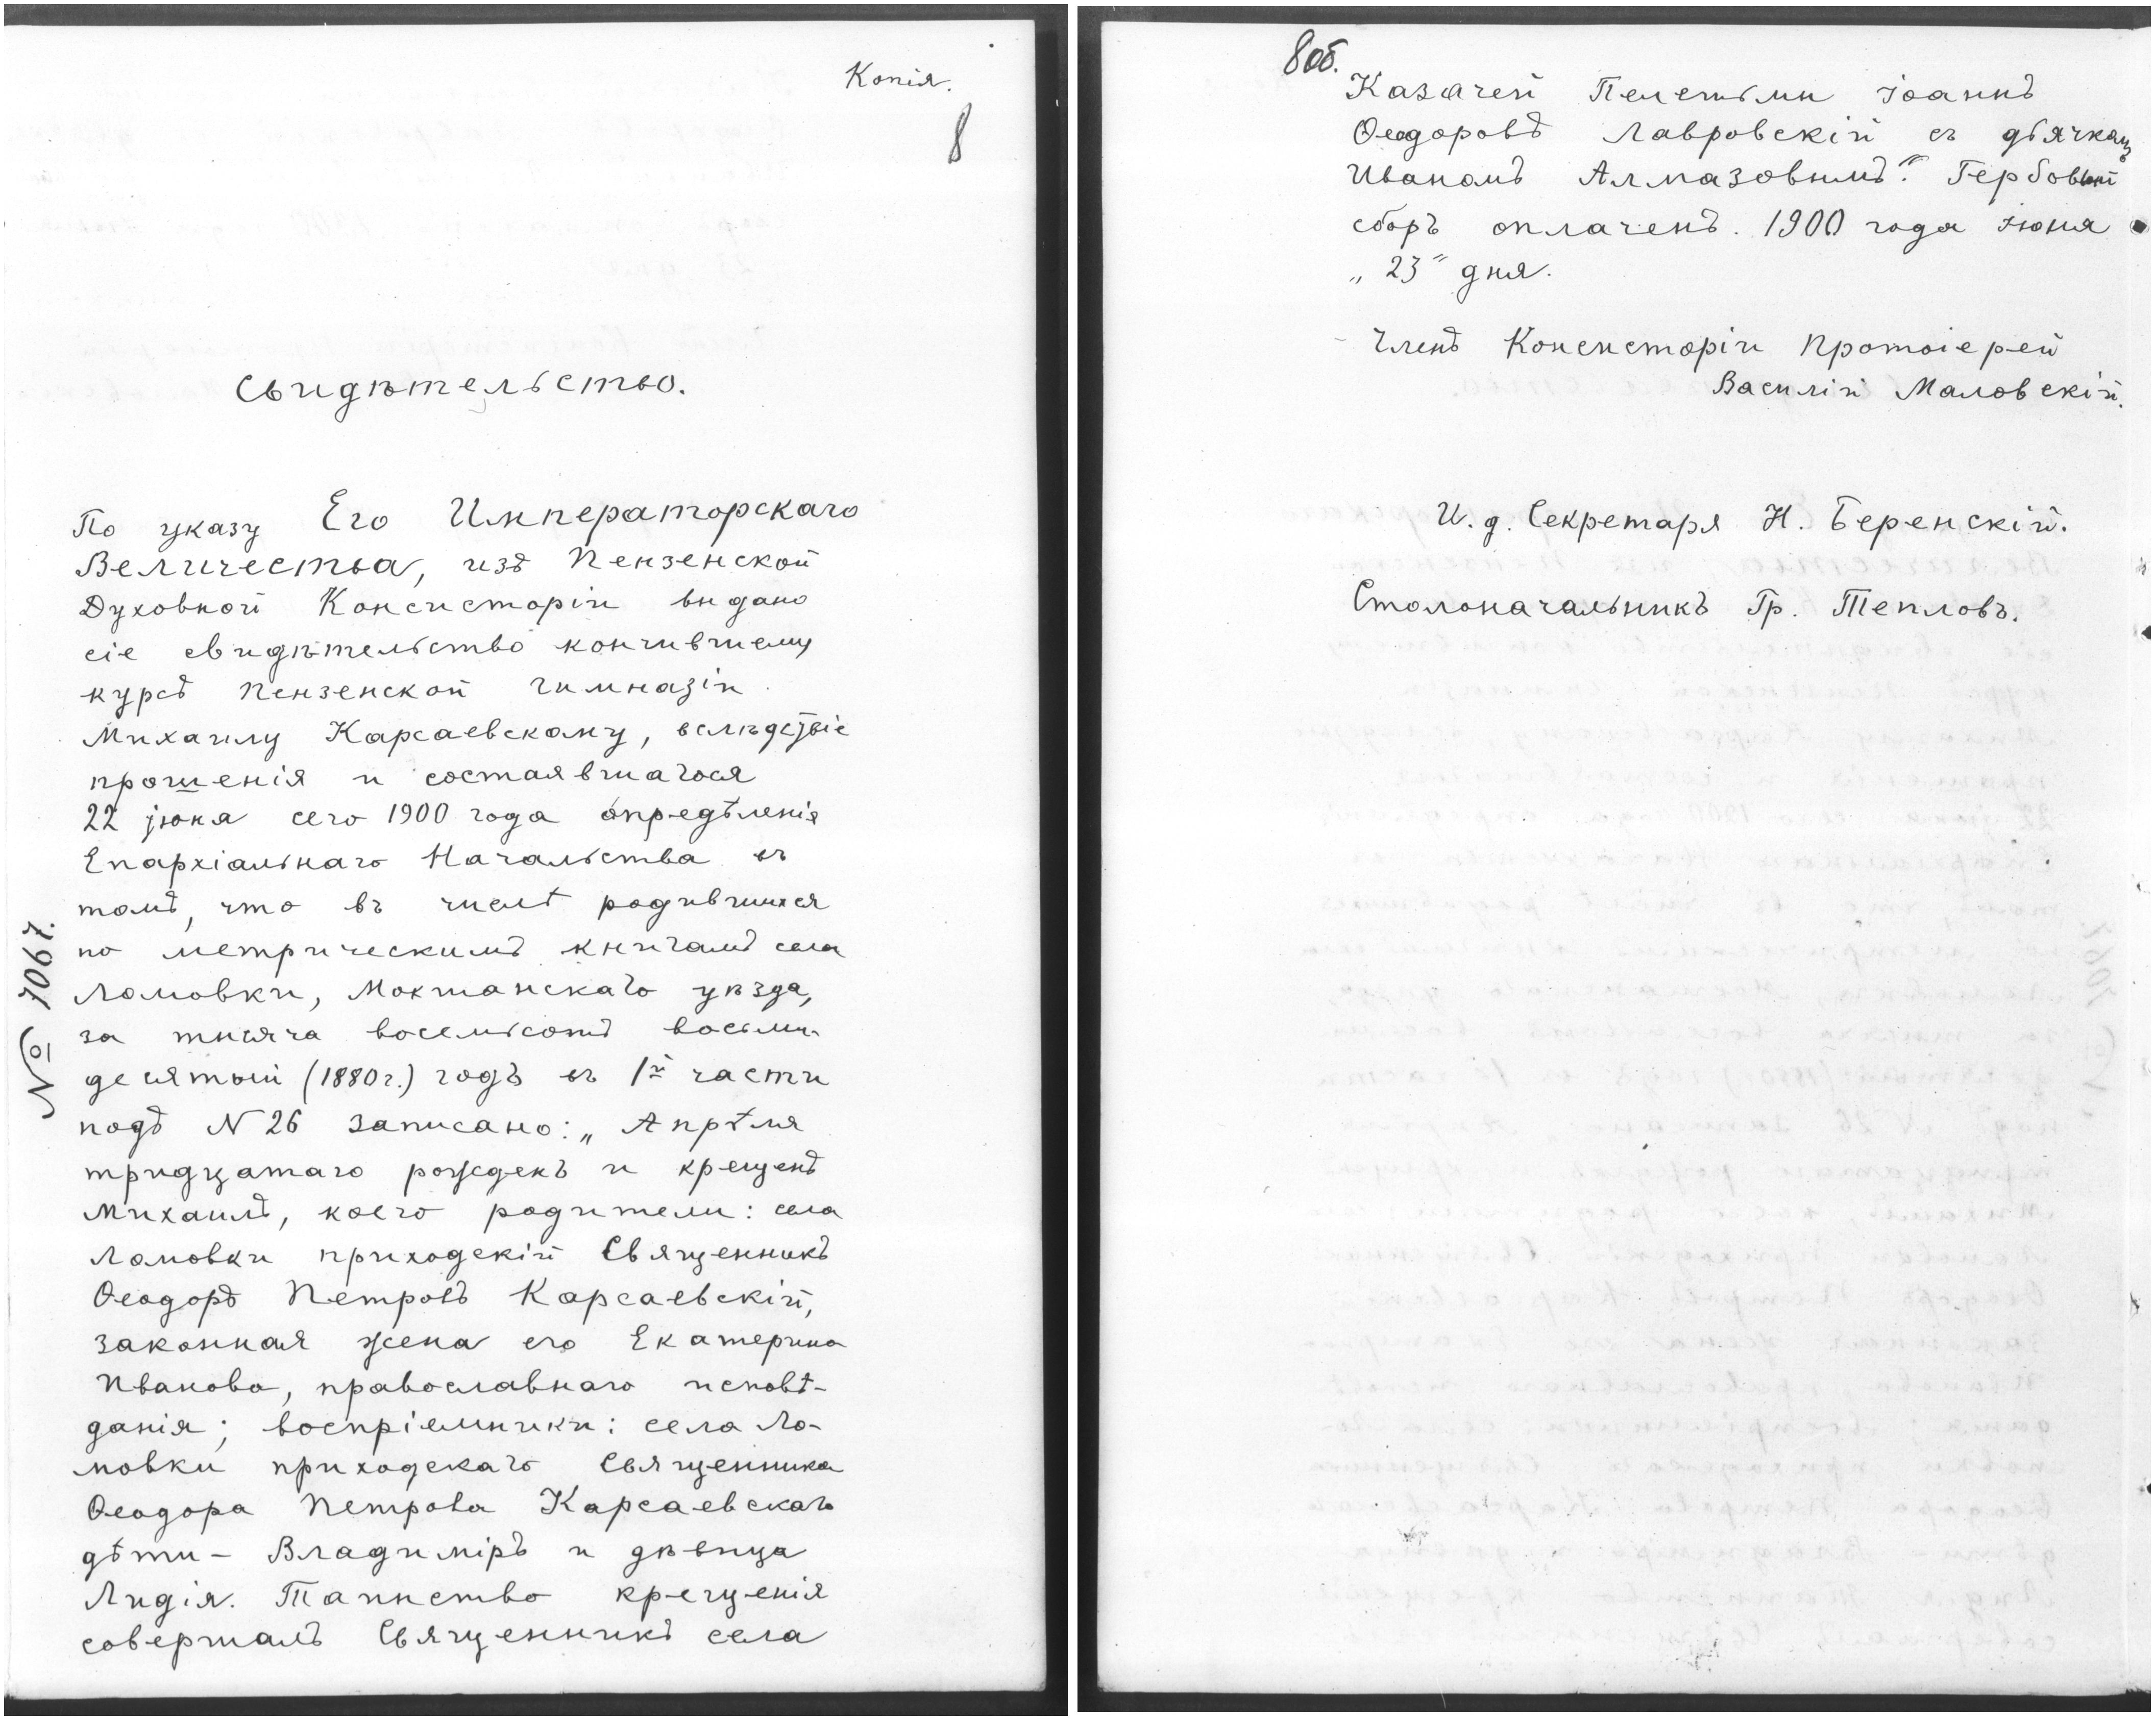 Копія.
8
Свидѣтельство.
По указу Его Императорскаго
Величества, изъ Пензенской
Духовной Консисторіи выдано
сіе свидѣтельство кончившему
курсъ Пензенской гимназіи
Михаилу Карсаевскому, вслѣдствіе
прошенія и состоявшагося
22 іюня сего 1900 года опредѣленія
Епархіальнаго Начальства въ
томъ, что въ числѣ родившихся
по метрическимъ книгамъ села
Ломовки, Мокшанскаго уѣзда,
за тысяча восемьсотъ восьми-
десятый (1880 г.) годъ въ 1й части
подъ N 26 записано: „Апрѣля
тридцатаго рожденъ и крещенъ
Михаилъ, коего родители: села
Ломовки приходскій Священникъ
Ѳеодоръ Петровъ Карсаевскій,
законная жена его Екатерина
Иванова, православнаго исповѣ-
данія; воспріемники: села Ло-
мовки приходскаго Священника
Ѳеодора Петрова Карсаевскаго
дѣти - Владиміръ и дѣвица
Лидія. Таинство крещенія
совершалъ Священникъ села
№ 7067.
8об.
Казачей Пелетьмы Іоаннъ
Ѳеодоровъ Лавровскій съ дьячкомъ
Иваномъ Алмазовымъ". Гербовый
сборъ оплаченъ. 1900 года Іюня
„23" дня.
Членъ Консисторіи Протоіерей
Василій Маловскій.
И. д. Секретаря Н. Беренскій.
Столоначальникъ Гр. Тепловъ.